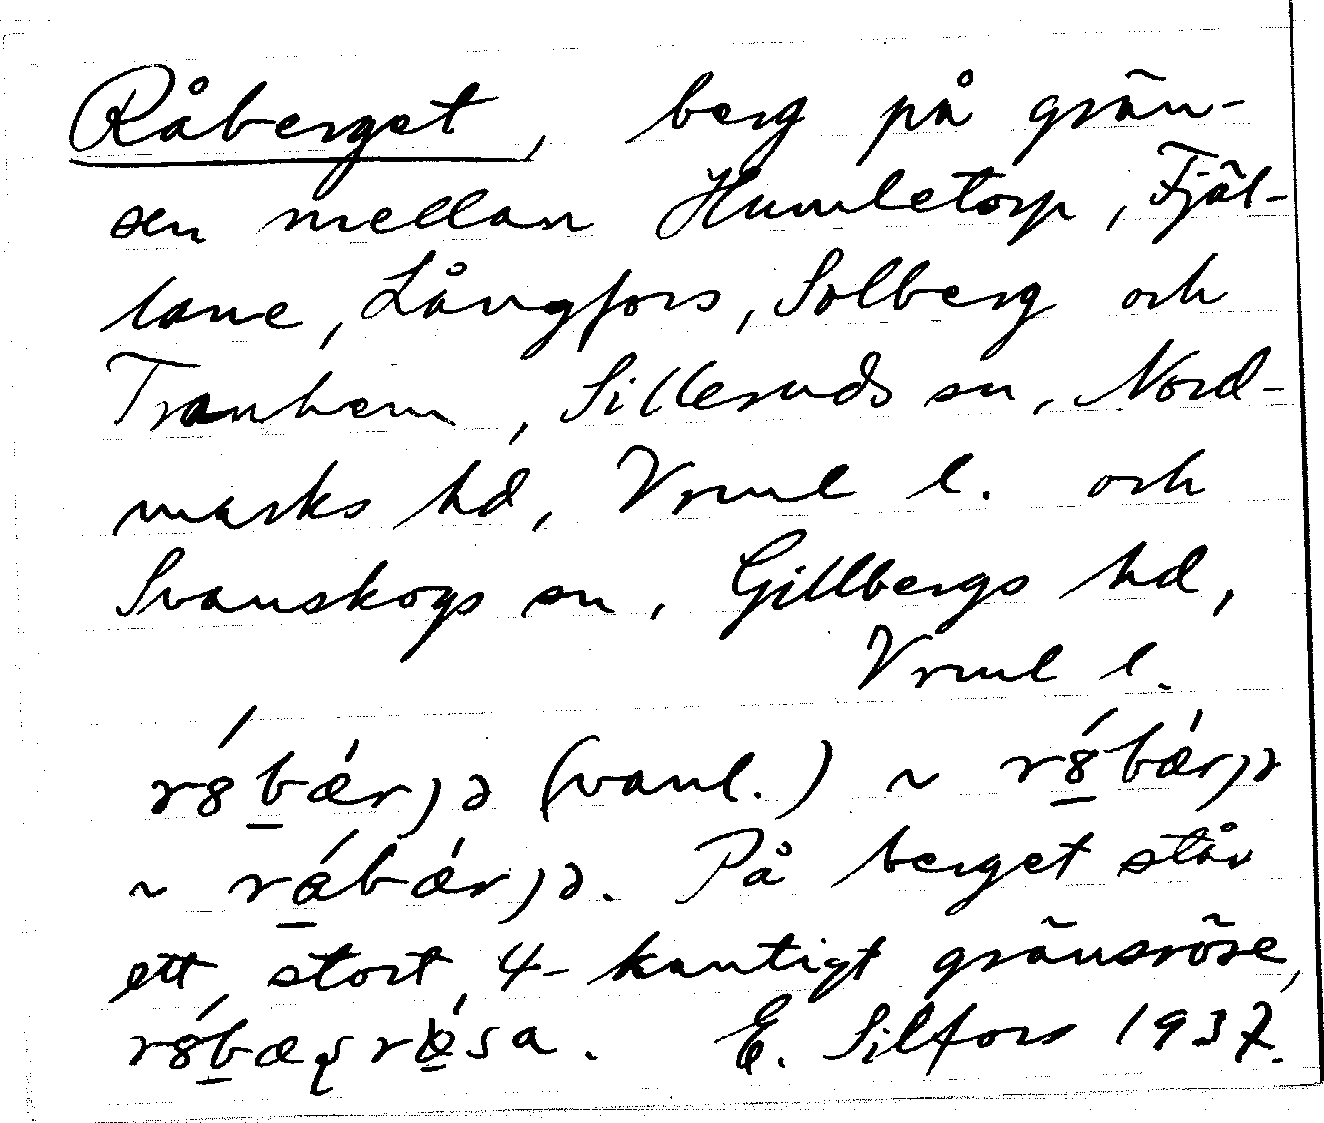 Råberget, berg på grän-
sen mellan Humletorp, Fjäl-
lane, Långfors, Solberg och
Tranhem, Silleruds sn, Nord-
marks hd, Vrml l. och
Svanskogs sn, Gillbergs hd,
Vrml l.
(vanl.) ~
~ På berget står
ett stort 4-kantigt gränsröse,
E. Silfors 1937.